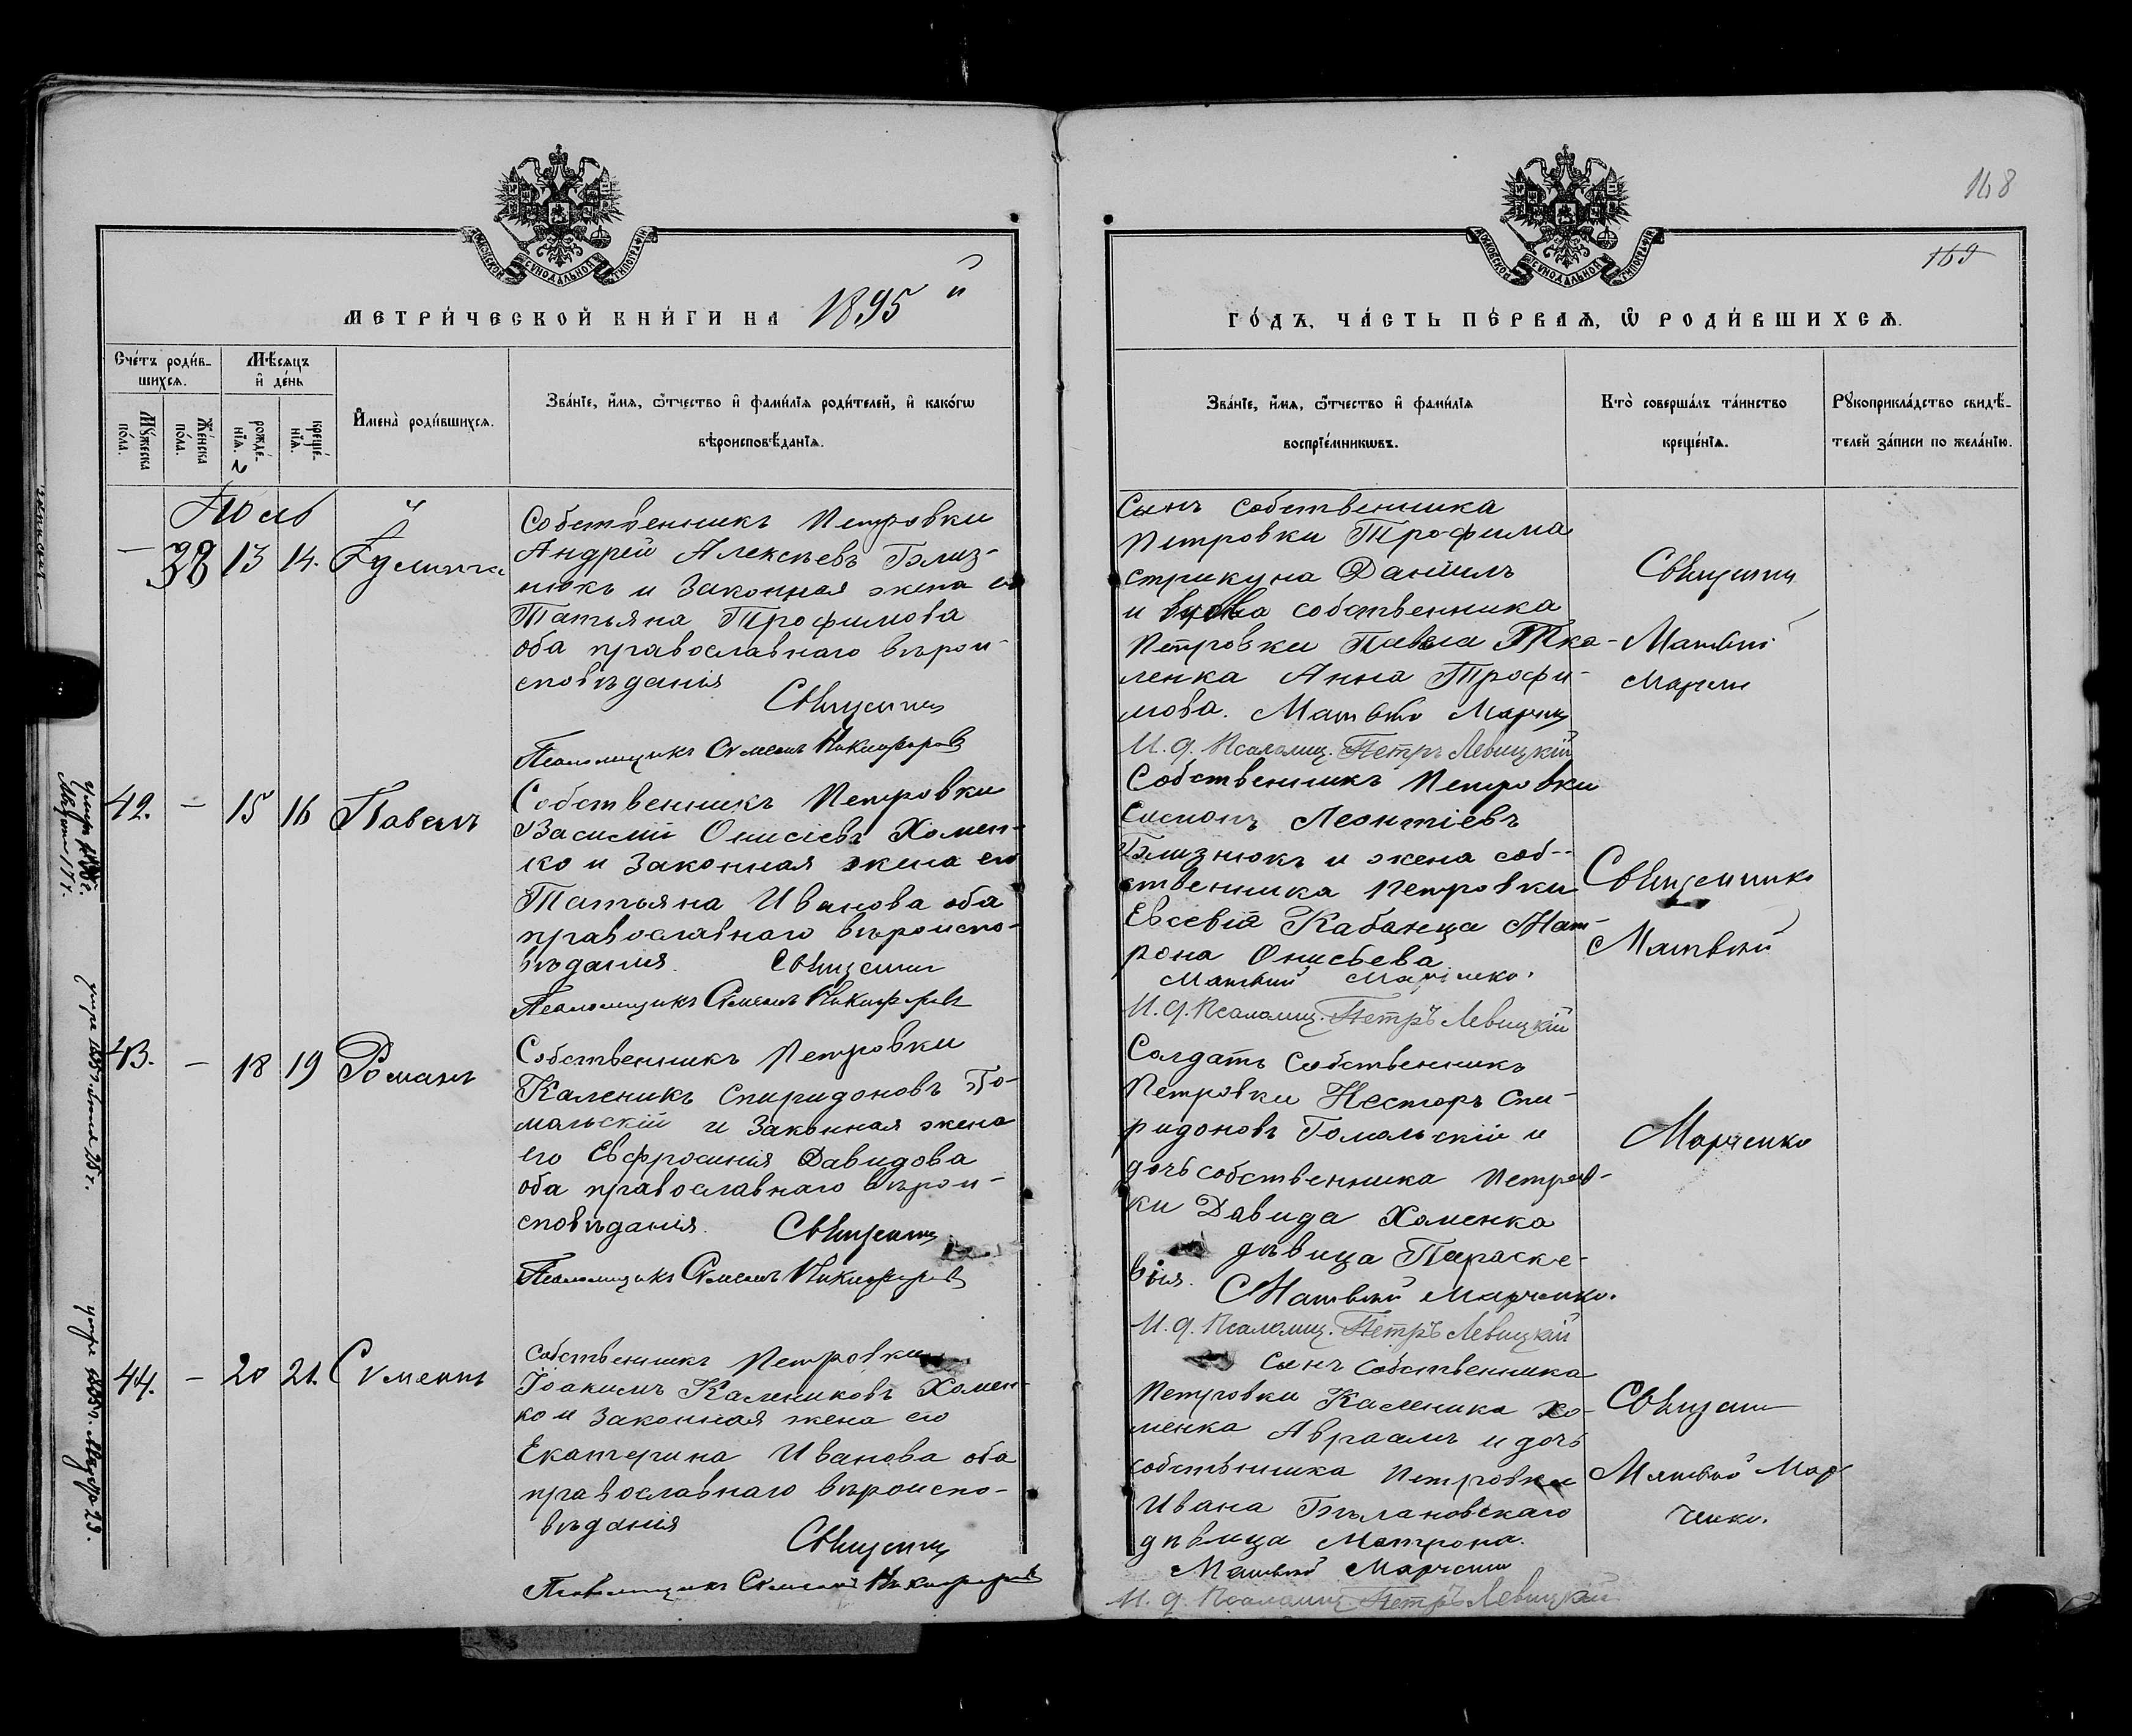 168
169
МОСКОВСКОЙ СѴНОДАЛЬНОЙ ТѴПОГРАФІИ
МЕТРИ́ЧЕСКОЙ КНИ́ГИ НА 1895
Сче́тъ роди́в-
шихсѧ.
Мѣ́сѧцъ
и҆ де́нь
Мꙋ́жеска
по́ла.
Же́нска
по́ла.
рожде́-
нїѧ.
креще́-
нїѧ.
И҆мена̀ роди́вшихсѧ.
Зва́нїе, и҆́мѧ, ѻ҆́тчество и҆ фами́лїѧ роди́телей, и҆ како́гѡ
вѣроисповѣ́данїѧ.
Іюль
— 38 13 14.
Собственникъ Петровки
Андрей Алексѣевъ Близ-
нюкъ и законная жена его
Татьяна Трофимова
оба православнаго вѣрои-
сповѣданія
Священникъ
Псаломщикъ Симеонъ Никифоровъ
42. — 15 16 Павелъ
Собственникъ Петровки
Василій Онисіевъ Хомен-
ко и законная жена его
Татьяна Иванова оба
православнаго вѣроиспо-
вѣданія. Священникъ
Псаломщикъ Симеонъ Никифоровъ
43. — 18 19 Романъ
Собственникъ Петровки
Каленикъ Спиридоновъ Го-
мольскій и законная жена
его Евфросинія Давидова
оба православнаго вѣрои-
сповѣданія. Священникъ
Псаломщикъ Симеонъ Никифоровъ
44. — 20 21. Симеонъ
Собственникъ Петровки
Іоакимъ Калениковъ Хомен-
ко и законная жена его
Екатерина Иванова оба
православнаго вѣроиспо-
вѣданія
Священникъ
Псаломщикъ Симеонъ Никифоровъ
МОСКОВСКОЙ СѴНОДАЛЬНОЙ ТѴПОГРАФІИ
ГО́ДЪ, ЧА́СТЬ ПЕ́РВАѦ, Ѡ҆ РОДИ́ВШИХСѦ.
Зва́нїе, и҆́мѧ, ѻ҆́тчество и҆ фами́лїѧ
воспрїе́мникѡвъ.
Кто̀ соверша́лъ та́инство
креще́нїѧ.
Рꙋкоприкла́дство свидѣ́-
телей за́писи по жела́нїю.
Сынъ собственника
Петровки Трофима
Стрикуна Даніилъ
и вдова собственника
Петровки Павла Тка-
ленка Анна Трофи-
мова. Матвѣй Марченко
И. д. Псаломщ. Петръ Левицкій
Священникъ
Матвѣй
Марченко
Собственникъ Петровки
Симонъ Леонтіевъ
Близнюкъ и жена соб-
ственника Петровки
Евсевія Кабанца Мат-
рона Онисьева
Матвѣй Марченко.
И. д. Псаломщ. Петръ Левицкій
Священникъ
Матвѣй
Солдатъ собственникъ
Петровки Несторъ Спи-
ридоновъ Гомольскій и
дочь собственника Петров-
ки Давида Хоменка
дѣвица Параске-
вія. Матвѣй Марченко.
И. д. Псаломщ. Петръ Левицкій
Марченко
Сынъ собственника
Петровки Каленика Хо-
менка Авраамъ и дочь
собственника Петровки
Ивана Бѣлановскаго
дѣвица Матрона.
Матвѣй Марченко
И. д. Псаломщ. Петръ Левицкій
Священникъ
Матвѣй Мар-
ченко.